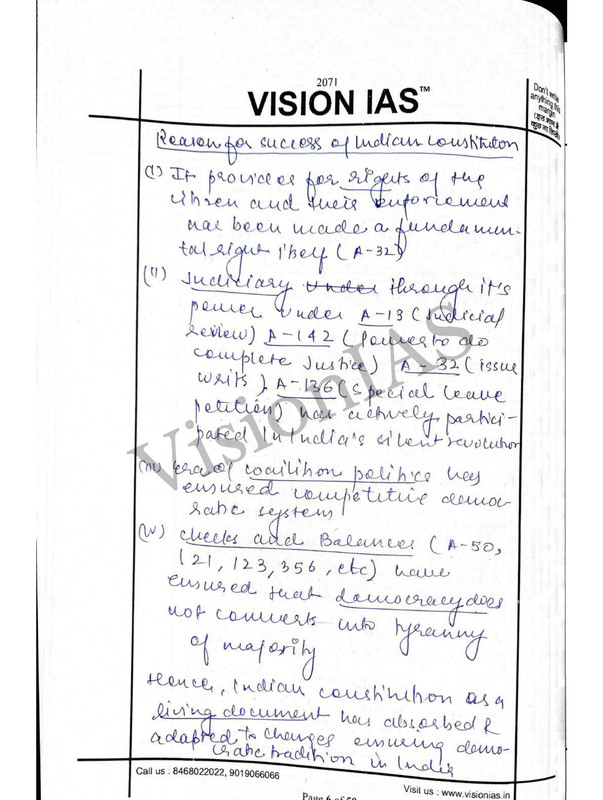 2071
VISION IAS™
Don't write
anything this
margin
Reason for success of Indian Constitution
(I) It provides for rights of the
citizen and their enforcement
has been made a fundamen-
tal right itself (A-32)
(II) Judiciary under through it's
power under A-13 (Judicial
review) A-142 (Power to do
complete Justice) A-32 (issue
writs), A-136 (special leave
petition) has actively partici-
pated in India's silent revolution
(III) era of coailition politics has
ensured competitive democ-
ratic system
(IV) checks and Balances (A-50,
121, 123, 356, etc) have
ensured that democracy does
not converts into tyranny
of majority
Hence, Indian constitution as a
living document has absorbed &
adapted to changes ensuring demo-
cratic tradition in India
VisionIAS
Call us : 8468022022, 9019066066
Visit us : www.visionias.in
Page 6 of 50